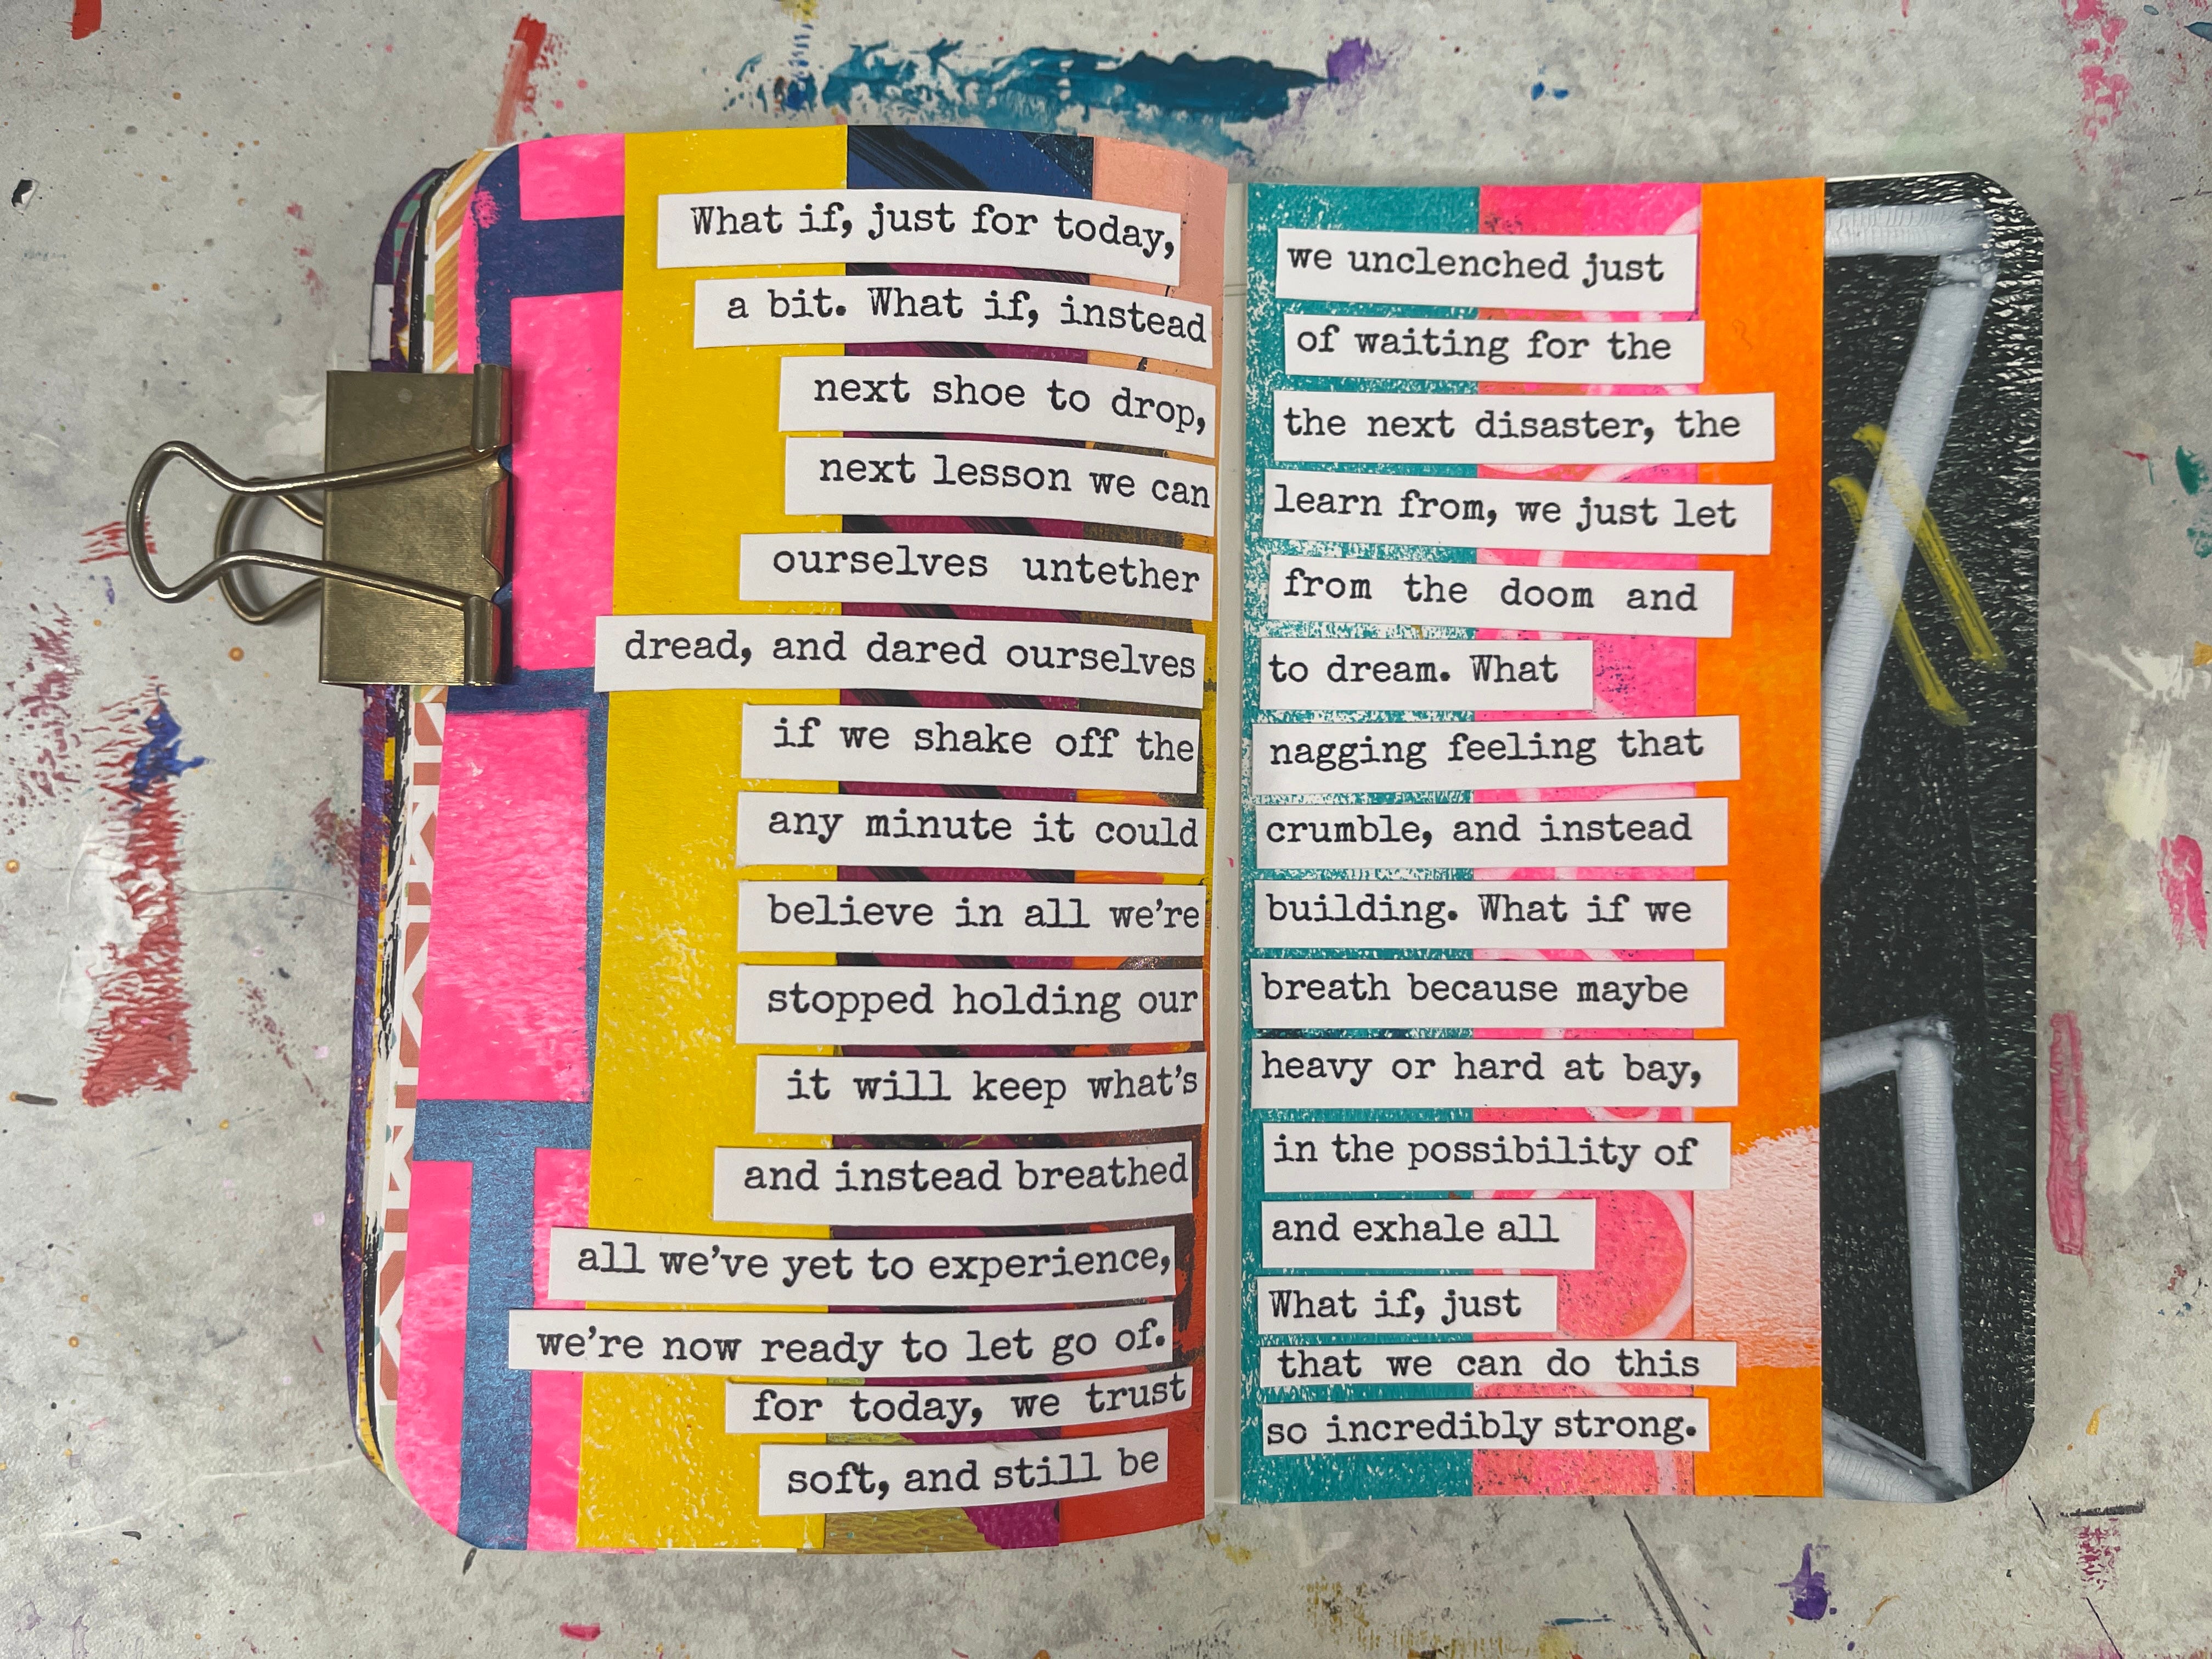 What if, just for today, we unclenched just
a bit. What if, instead of waiting for the
next shoe to drop, the next disaster, the
next lesson we can learn from, we just let
ourselves untether from the doom and
dread, and dared ourselves to dream. What
if we shake off the nagging feeling that
any minute it could crumble, and instead
believe in all we're building. What if we
stopped holding our breath because maybe
it will keep what's heavy or hard at bay,
and instead breathed in the possibility of
all we've yet to experience, and exhale all
we're now ready to let go of. What if, just
for today, we trust that we can do this
soft, and still be so incredibly strong.